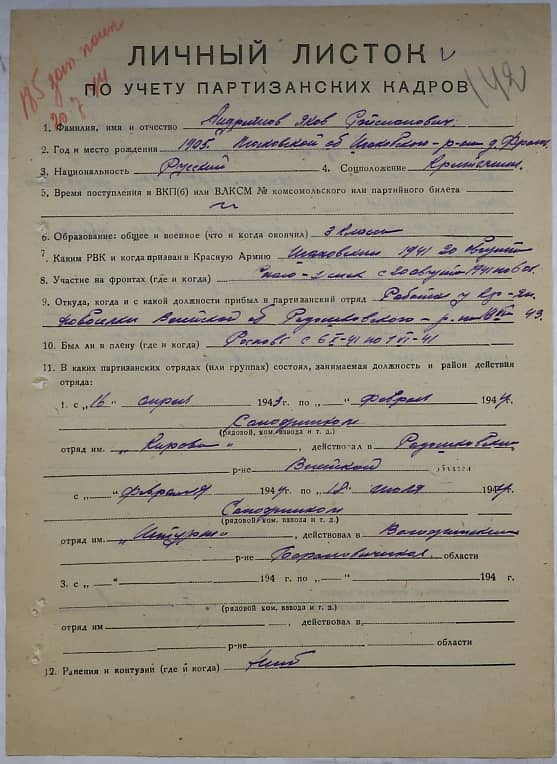 185
20 7 44
142
ЛИЧНЫЙ ЛИСТОК
ПО УЧЕТУ ПАРТИЗАНСКИХ КАДРОВ
1. Фамилия, имя и отчество Яков
2. Год и место рождения 1905. Московской об
3. Национальность Русский 4. Соцположение
5. Время поступления в ВКП(б) или ВЛКСМ № комсомольского или партийного билета
6. Образование: общее и военное (что и когда окончил) 3 класс
7. Каким РВК и когда призван в Красную Армию 1941 20 августа
8. Участие на фронтах (где и когда) с 20 августа 1941 по
9. Откуда, когда и с какой должности прибыл в партизанский отряд Работал у
об Радошковского р. 43.
10. Был ли в плену (где и когда) с 6 X-41 по
11. В каких партизанских отрядах (или группах) состоял, занимаемая должность и район действия
отряда:
1. с „16“ апреля 1943 г. по „ “ февраля 1944 г.
Сапожником
(рядовой, ком. взвода и т. д.)
отряд им. „Кирова“, действовал в
р-не области
с „ “ февраля 1944 г. по „18“ июля 1944 г.
Сапожником
(рядовой, ком. взвода и т. д.)
отряд им. „Штурм“, действовал в
р-не Барановичская области
3. с „ “ 194 г. по „ “ 194 г.
(рядовой, ком. взвода и т. д.)
отряд им , действовал в
р-не области
12. Ранения и контузии (где и когда) нет